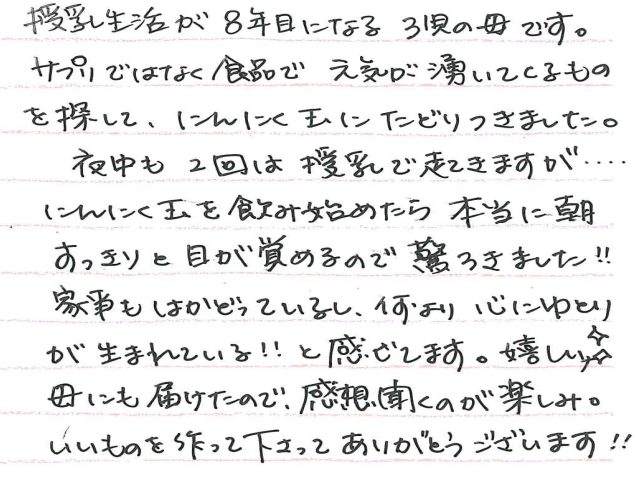 授乳生活が 8年目になる 3児の母です。
サプリではなく食品で 元気が湧いてくるもの
を探して、にんにく玉に たどりつきました。
夜中も 2回は 授乳で起きますが‥‥
にんにく玉を飲み始めたら 本当に朝
すっきりと目が覚めるので驚ろきました!!
家事もはかどっているし、何より 心にゆとり
が生まれている!! と感じてます。嬉しい☆☆
母にも届けたので、感想聞くのが楽しみ。
いいものを作って下さって ありがとうございます!!